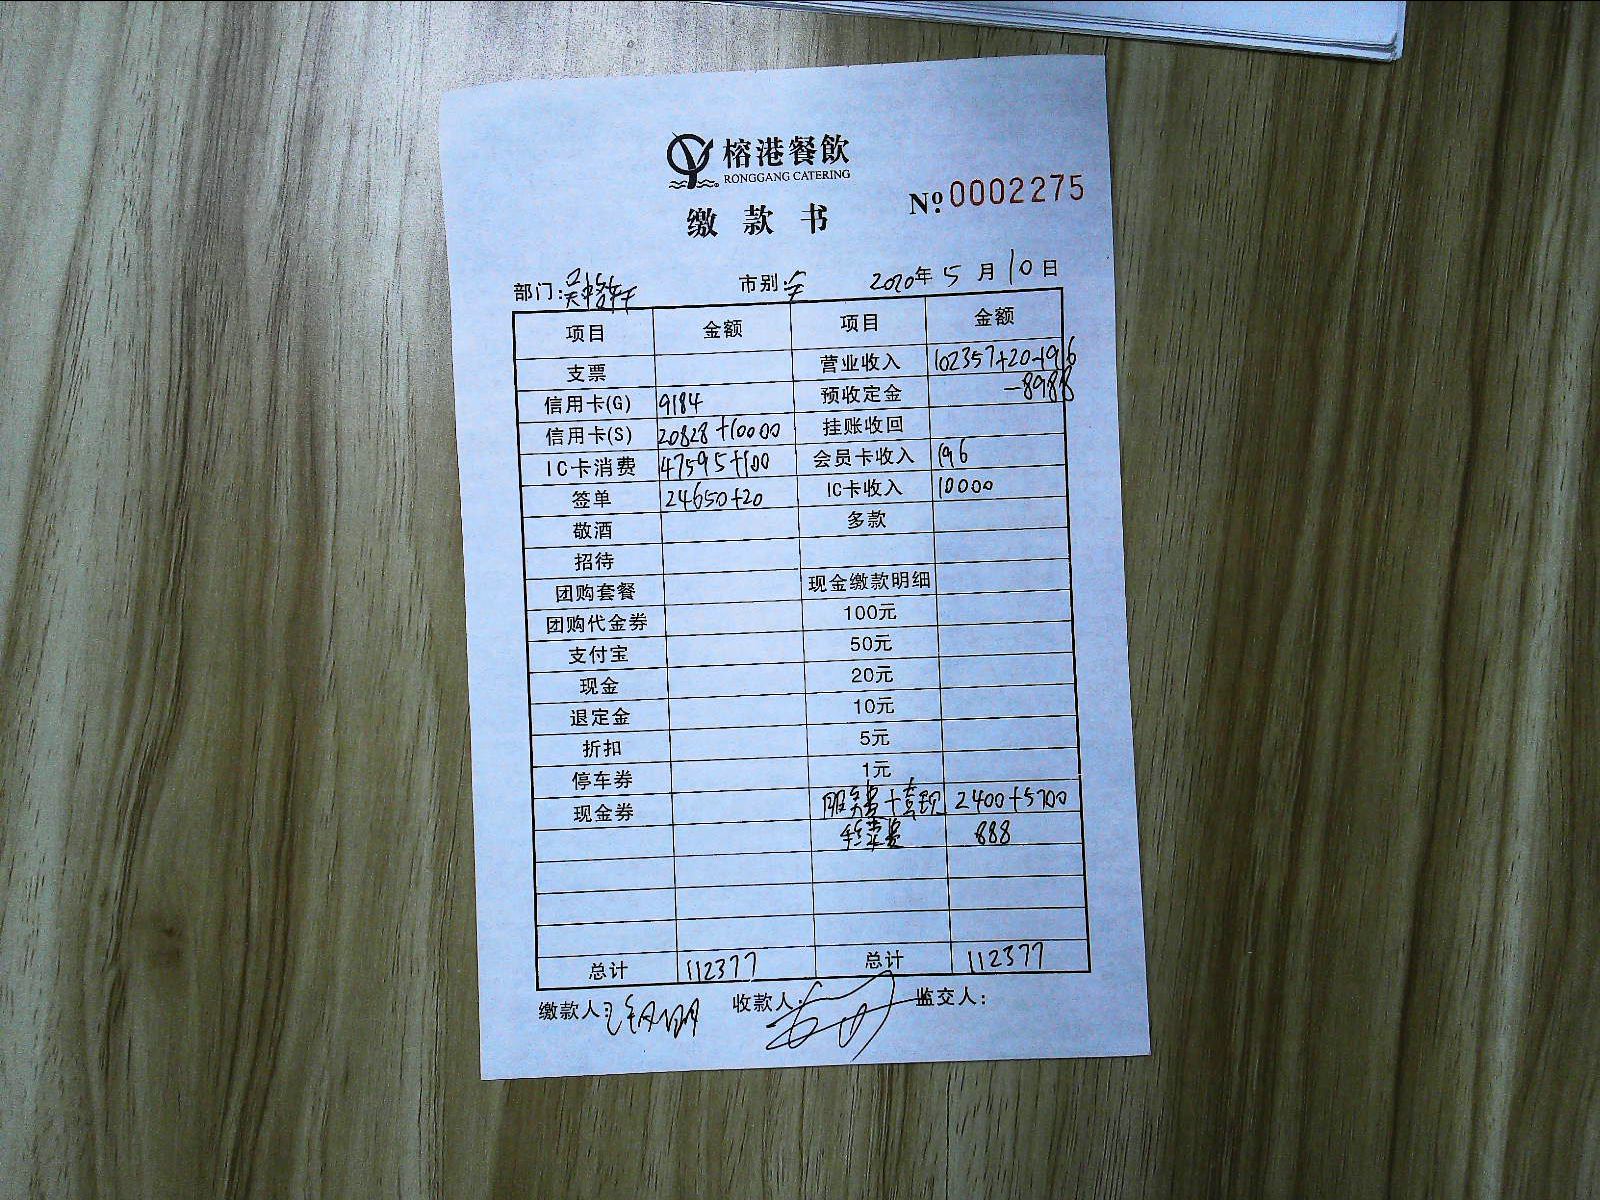 榕港餐飲
RONGGANG CATERING
缴款书
№ 0002275
部门: 市别:全 2020年5月10日
项目 金额 项目 金额
支票 营业收入 102357+20-196
信用卡(G) 9184 预收定金 -8988
信用卡(S) 20828+10000 挂账收回
IC卡消费 47595+100 会员卡收入 196
签单 24650+20 IC卡收入 10000
敬酒 多款
招待
团购套餐 现金缴款明细
团购代金券 100元
支付宝 50元
现金 20元
退定金 10元
折扣 5元
停车券 1元
现金券 服务费+套现 2400+5700
手续费 888
总计 112377 总计 112377
缴款人: 收款人: 监交人: